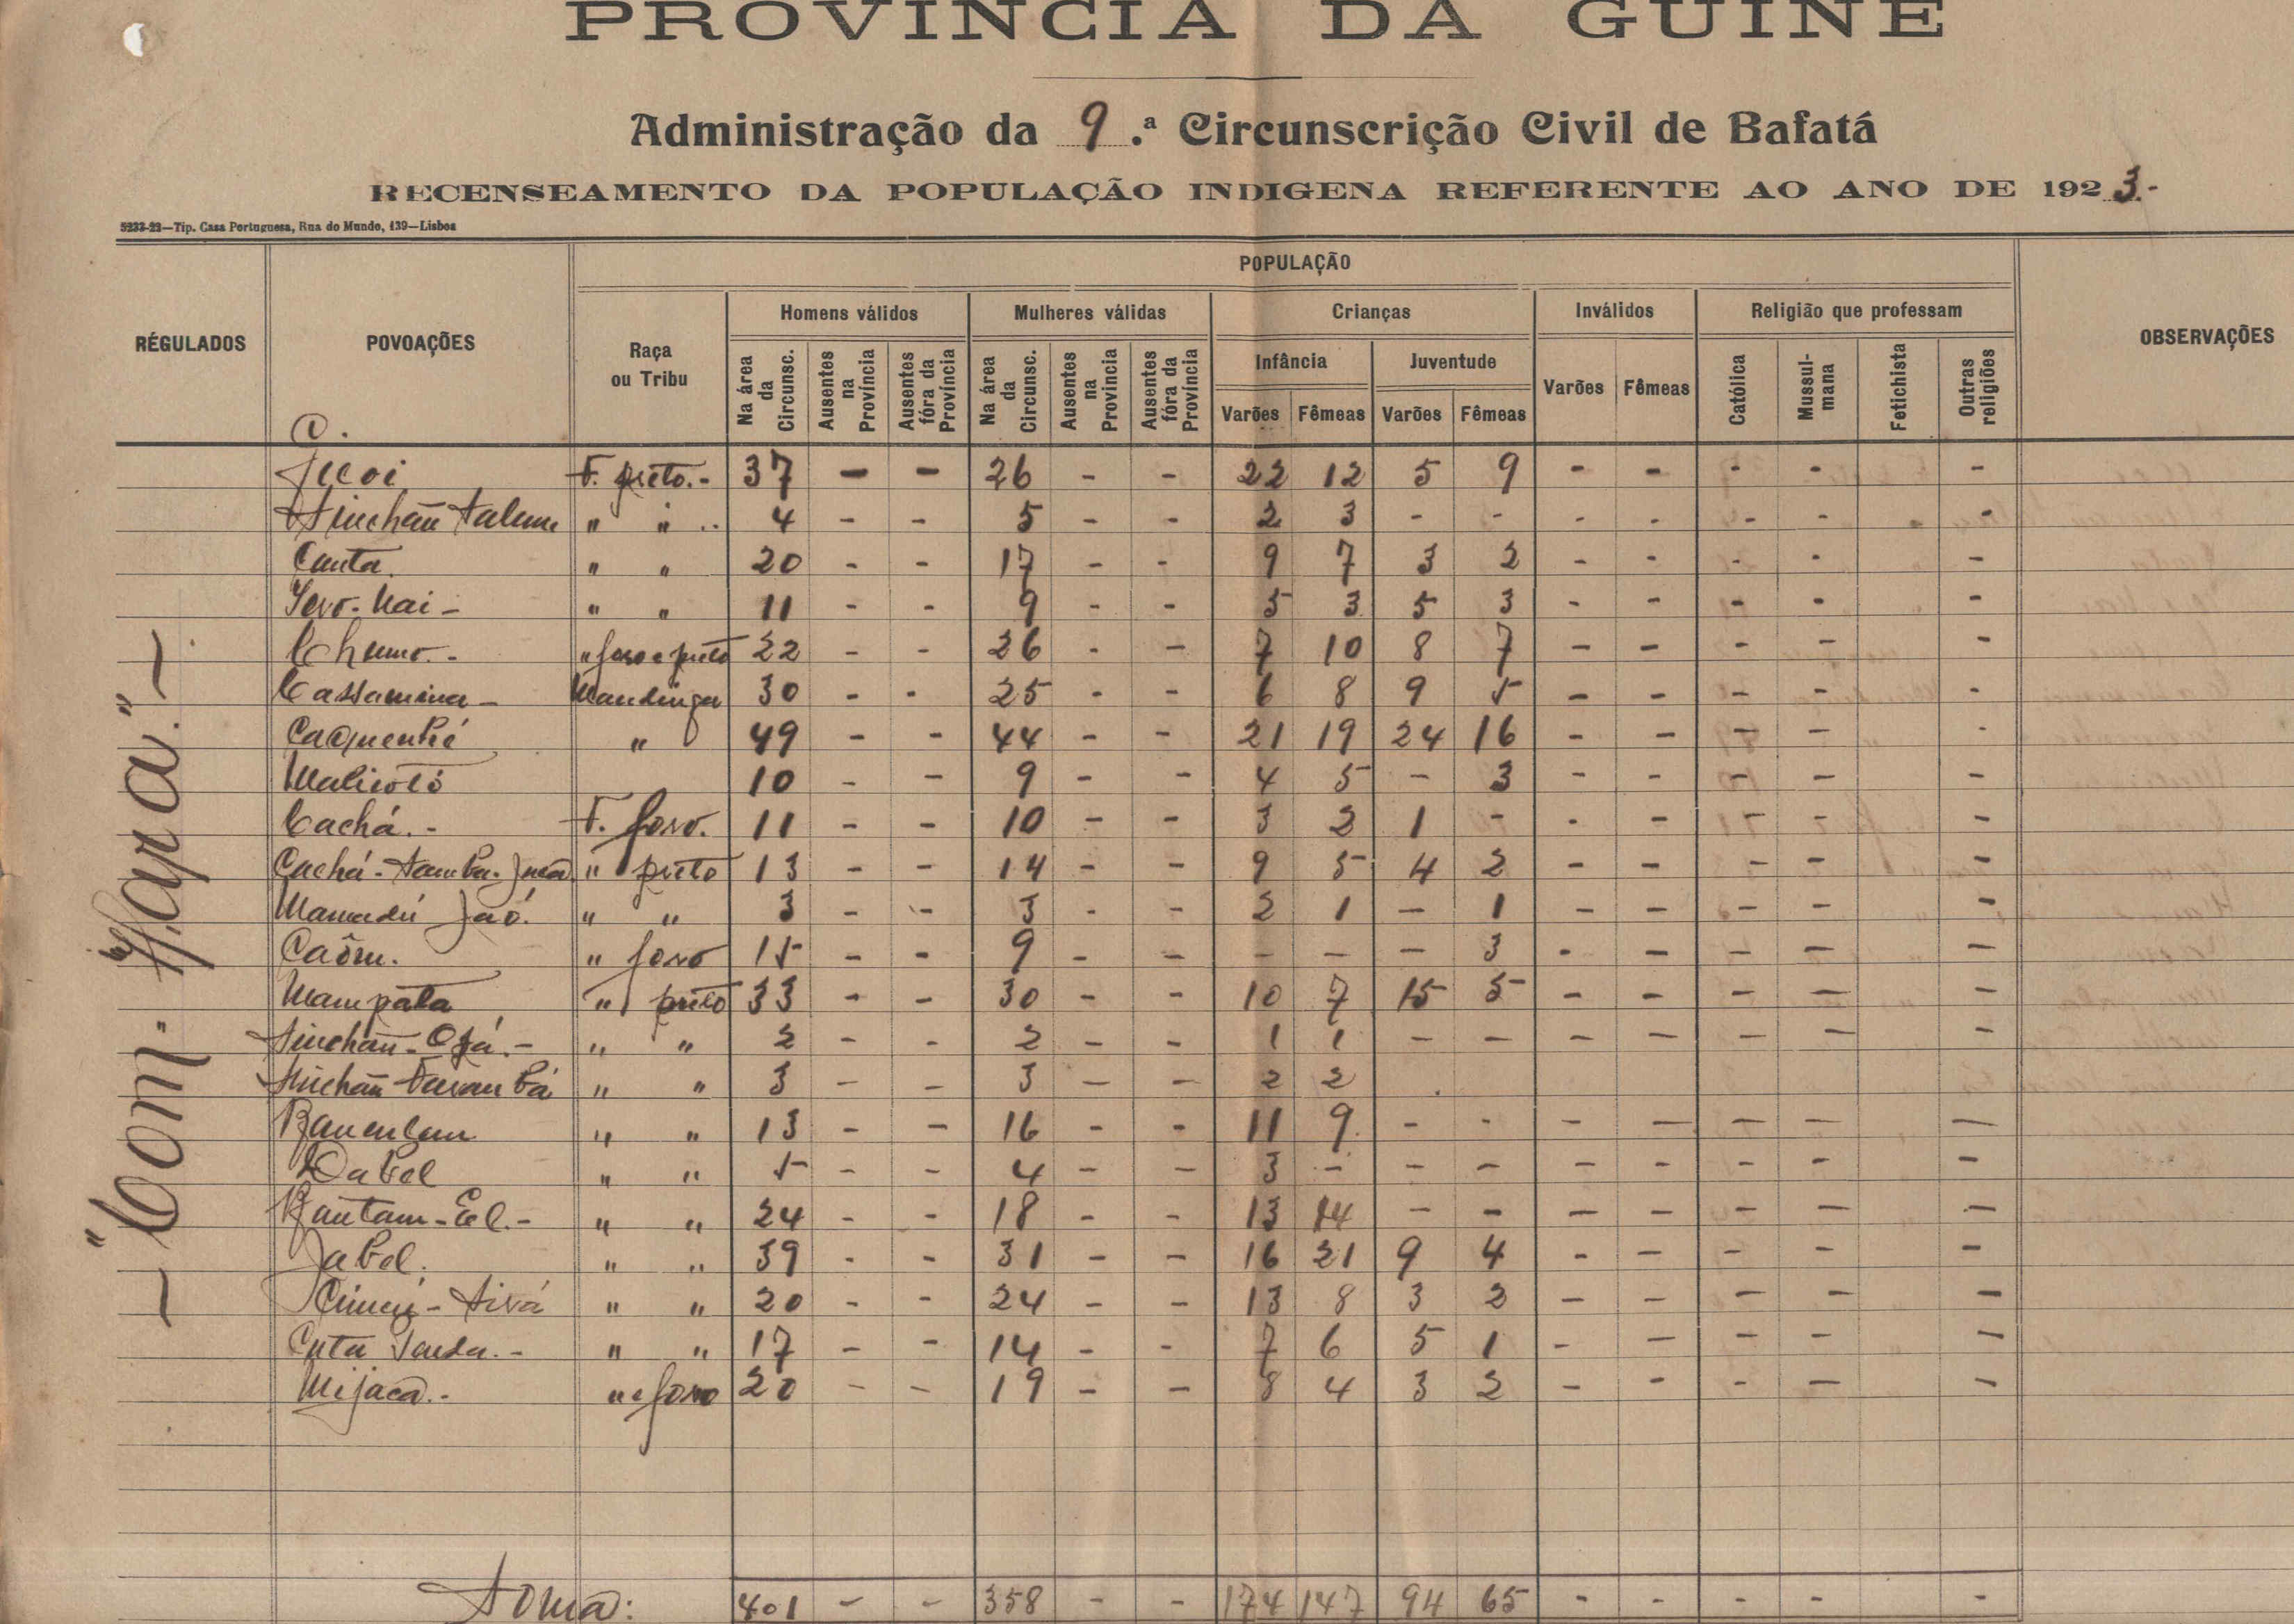 PROVINCIA DA GUINÉ
Administração da 9.ª Circunscrição Civil de Bafatá
RECENSEAMENTO DA POPULAÇÃO INDIGENA REFERENTE AO ANO DE 1923.-
5233-23—Tip. Casa Portuguesa, Rua do Mundo, 139—Lisboa
POPULAÇÃO
RÉGULADOS POVOAÇÕES Raça ou Tribu Homens válidos Mulheres válidas Crianças Inválidos Religião que professam OBSERVAÇÕES
Infância Juventude
Na área da Circunsc. Ausentes na Província Ausentes fóra da Província Na área da Circunsc. Ausentes na Província Ausentes fóra da Província Varões Fêmeas Varões Fêmeas Varões Fêmeas Católica Mussulmana Fetichista Outras religiões
F. preto.- 37 - - 26 - - 22 12 5 9 - - - - -
" " 4 - - 5 - - 2 3 - - - - - - -
Canta. " " 20 - - 17 - - 9 7 3 2 - - - - -
" " 11 - - 9 - - 5 3 5 3 - - - - -
Chumo.- " foro e preto 22 - - 26 - - 7 10 8 7 - - - - -
Cassamina - Mandinga 30 - - 25 - - 6 8 9 5 - - - - -
" 49 - - 44 - - 21 19 24 16 - - - - -
10 - - 9 - - 4 5 - 3 - - - - -
Cachá.- F. foro. 11 - - 10 - - 3 2 1 - - - - - -
Cachá- " preto 13 - - 14 - - 9 5 4 2 - - - - -
Mamadú Jaó. " " 3 - - 3 - - 2 1 - 1 - - - - -
Caôm. " foro 15 - - 9 - - - - - 3 - - - - -
Mampata " preto 33 - - 30 - - 10 7 15 5 - - - - -
" " 2 - - 2 - - 1 1 - - - - - - -
" " 3 - - 3 - - 2 2
" " 13 - - 16 - - 11 9 - - - - - - -
Dabel " " 5 - - 4 - - 3 - - - - - - - -
" " 24 - - 18 - - 13 14 - - - - - - -
Jabel. " " 39 - - 31 - - 16 21 9 4 - - - - -
" " 20 - - 24 - - 13 8 3 2 - - - - -
" " 17 - - 14 - - 7 6 5 1 - - - - -
Mijaca.- " e foro 20 - - 19 - - 8 4 3 2 - - - - -
Soma: 401 - - 358 - - 174 147 94 65 - - - - -